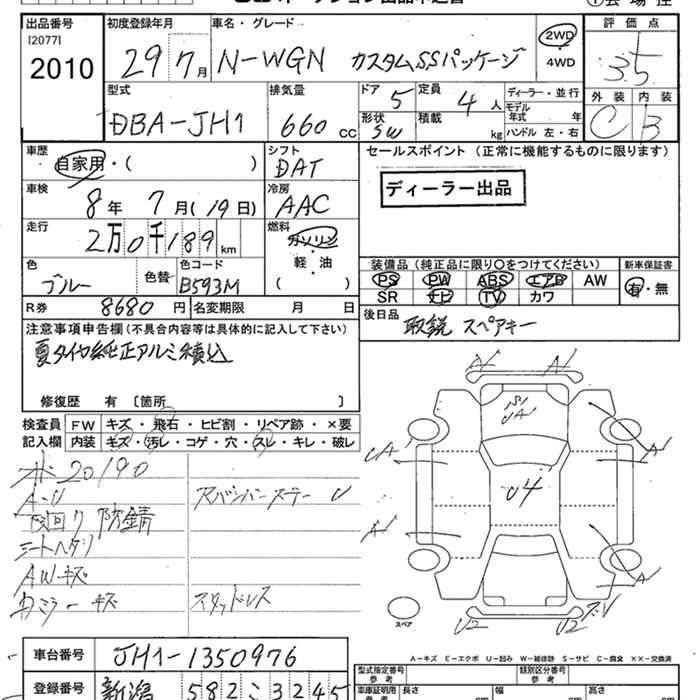 出品番号 初度登録年月 車名・グレード 評価点
[2077]
2010 29 7月 N-WGN カスタムSSパッケージ 2WD ・ 4WD 3.5
型式 排気量 ドア 5 定員 4人 ディーラー・並行 外装 内装
DBA-JH1 660 CC 形状 SW 積載 kg モデル年式 年 C B
ハンドル 左・右
車歴 シフト セールスポイント(正常に機能するものに限ります)
自家用・( ) DAT
車検 冷房 ディーラー出品
8年 7月(19日) AAC
走行 燃料
2万0千189km ガソリン
軽・油
( )
色 色替 色コード 装備品(純正品に限り○をつけてください) 新車保証書
ブルー B593M PS PW ABS エアB AW 有・無
SR ナビ TV カワ
R券 8680円 名変期限 月 日 後日品
取説 スペアキー
注意事項申告欄(不具合内容等は具体的に記入して下さい)
夏タイヤ純正アルミ積込
修復歴 有〔箇所 〕
検査員 FW キズ・飛石・ヒビ割・リペア跡・×要
記入欄 内装 キズ・汚レ・コゲ・穴・スレ・キレ・破レ
20/90
A・U
下回り防錆
シートヘタリ
AWキズ
カミラーキズ
スタッドレス
A1 A1
UA1
UA A1
U4
A1 A1
U2 U2
スペア
A-キズ E-エクボ U-凹み W-補修跡 S-サビ C-腐食 ××-交換済
車台番号 JH1-1350976
登録番号 新潟 582 こ 3245
型式指定番号 参考 類別区分番号 参考
車庫証明用 参考 長さ cm 幅 cm 高さ cm